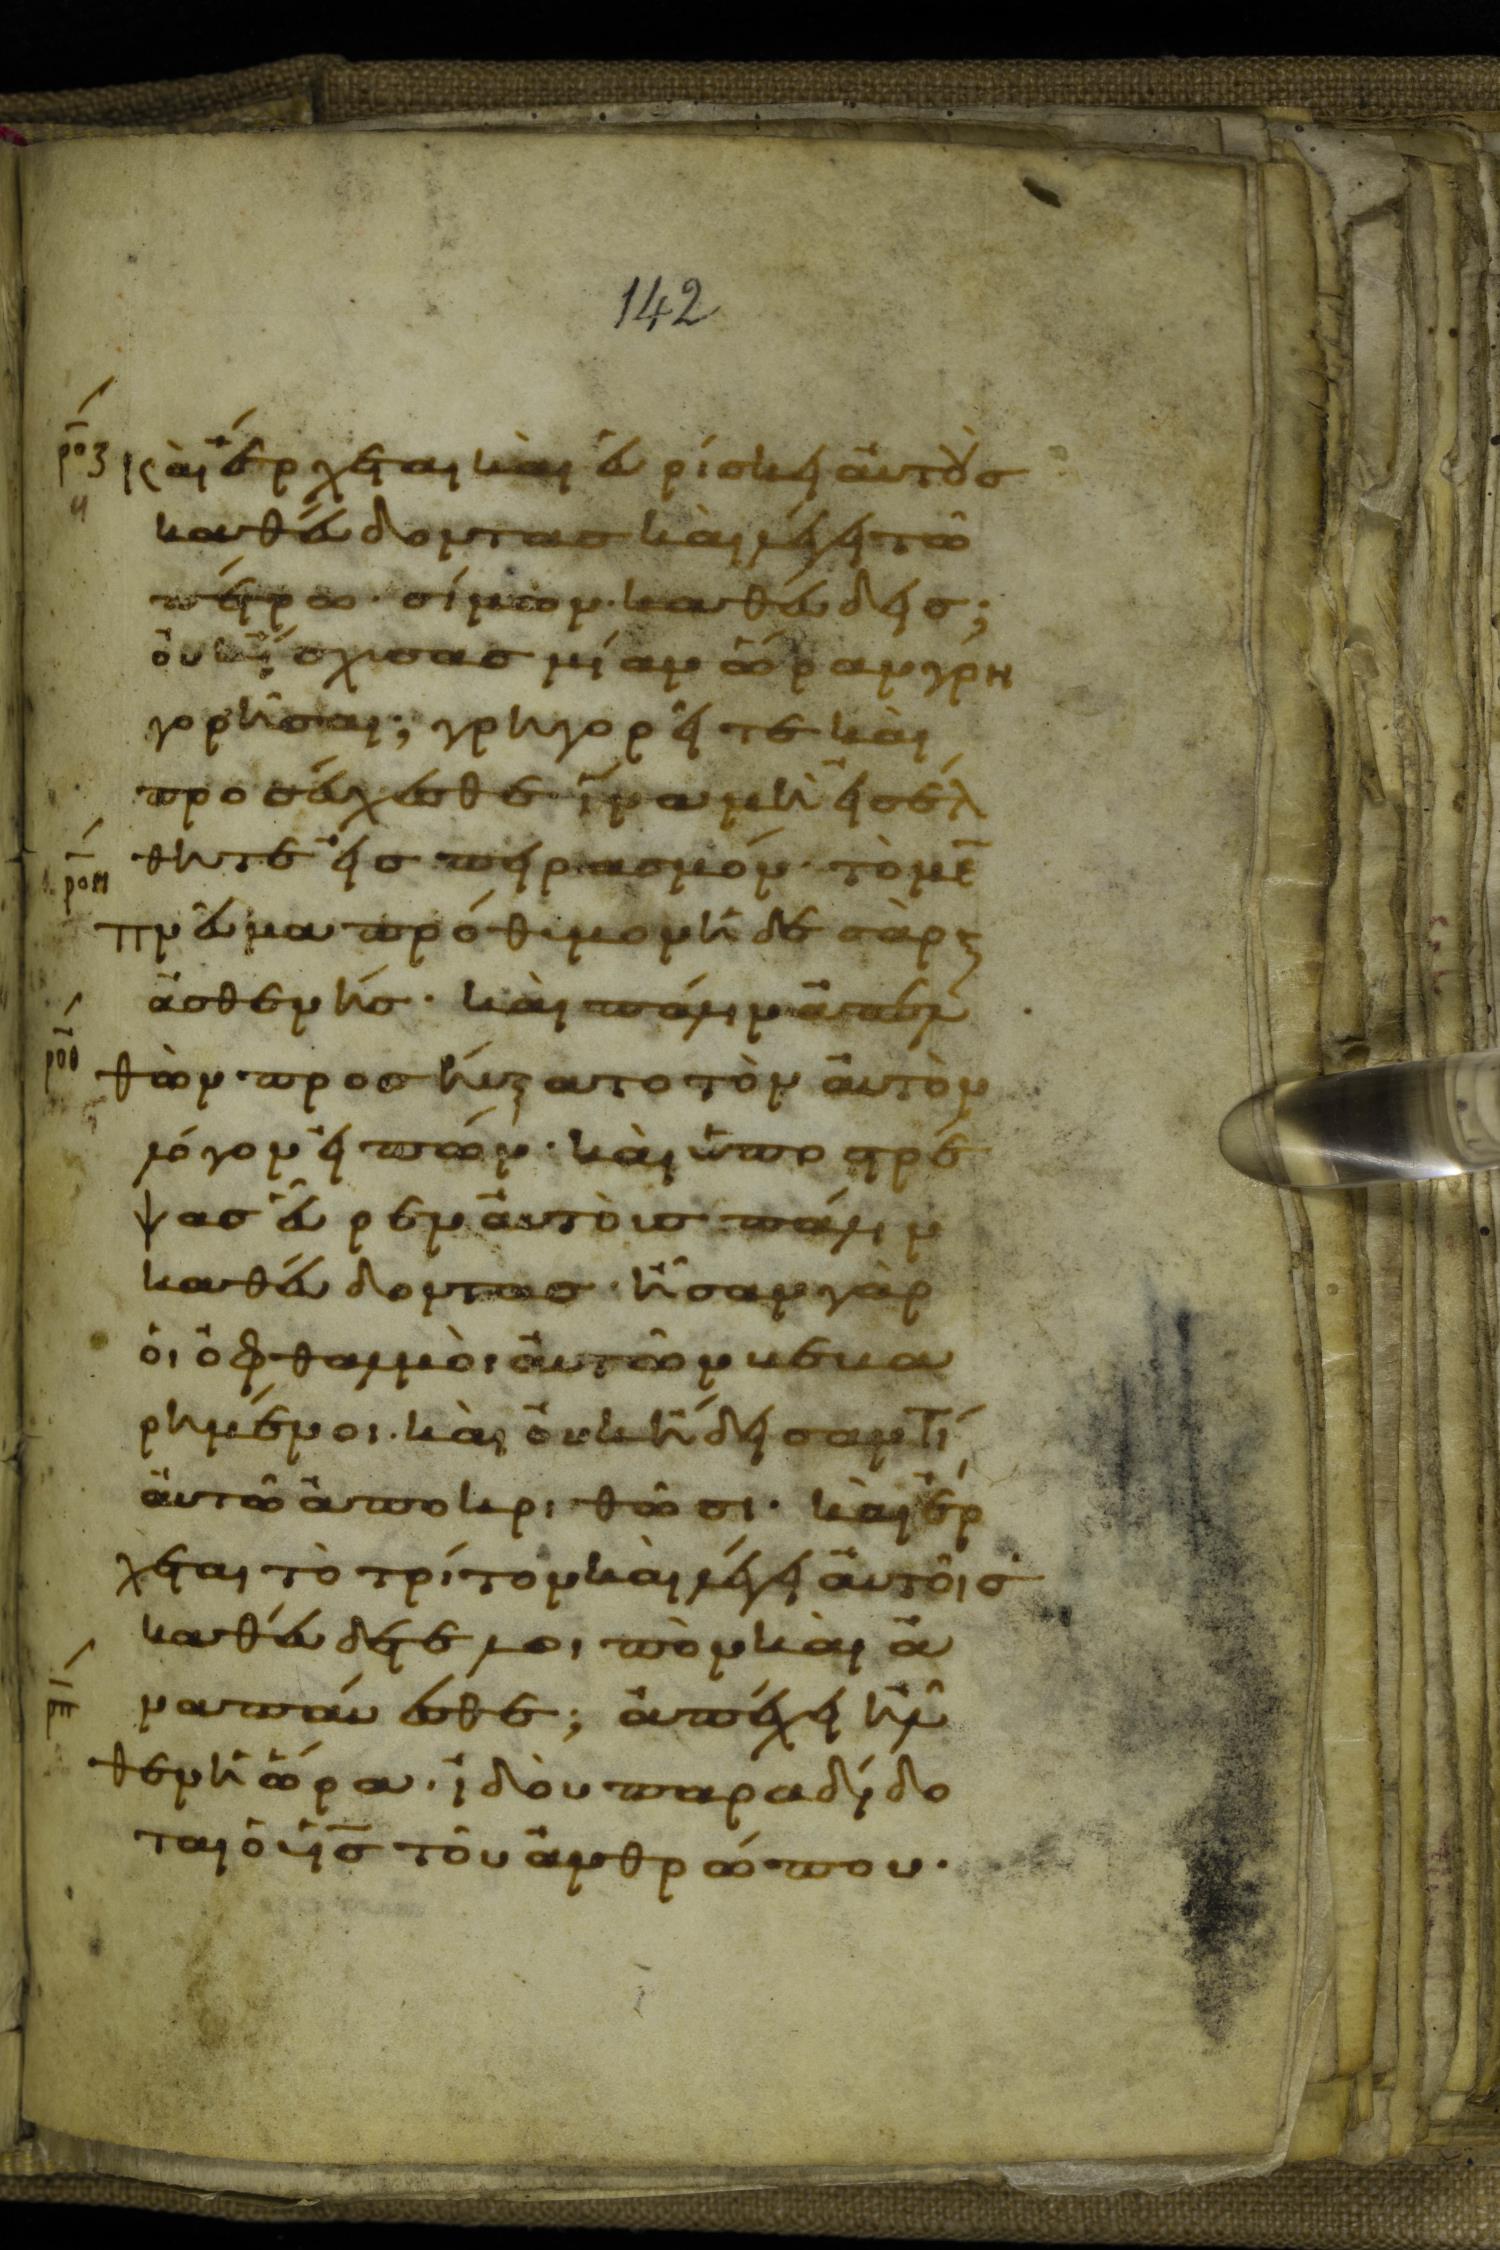 142
ροζ καὶ ἔρχεται καὶ εὑρίσκει αὐτοὺσ
η
καθεύδοντασ καὶ λέγει τῶ
πέτρω· σίμων· καθεύδεισ;
οὐκ ἴσχισασ μίαν ὥραν γρη
γορῆσαι; γρηγορεῖτε καὶ
προσεύχεσθε ἵνα μὴ εἰσέλ
θητε εἰσ πειρασμόν· τὸ μὲ̅
ροη
πνεύμα πρόθιμον ἡ δὲ σὰρξ
ἀσθενήσ· καὶ πάλιν ἀπελ
ροθ
θὼν προσηύξατο τὸν αὐτὸν
λόγον εἰπών· καὶ ὑποστρέ
ψασ εὗρεν αὐτοὺσ πάλιν
καθεύδοντασ· ἦσαν γὰρ
οἱ ὀφθαλμοὶ αὐτῶν κεκα
ρημένοι· καὶ οὐκ ἤδεισαν τί
αὐτῶ ἀποκριθῶσι· καὶ ἔρ
χεται τὸ τρίτον καὶ λέγει αὐτοῖσ
καθεύδετε λοιπὸν καὶ ἀ
ναπαύεσθε; ἀπέχει ἦλ
ρπ
θεν ἡ ὥρα· ἰδοὺ παραδίδο
ται ὁ υἱ̅σ τοῦ ἀνθρώπου·